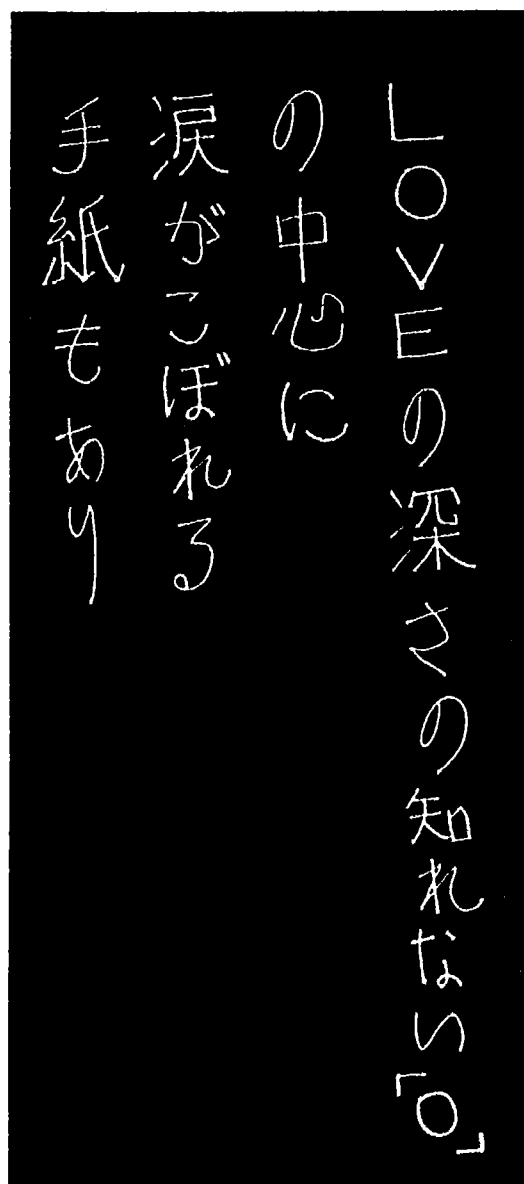 LOVEの深さの知れない「O」
の中心に
涙がこぼれる
手紙もあり